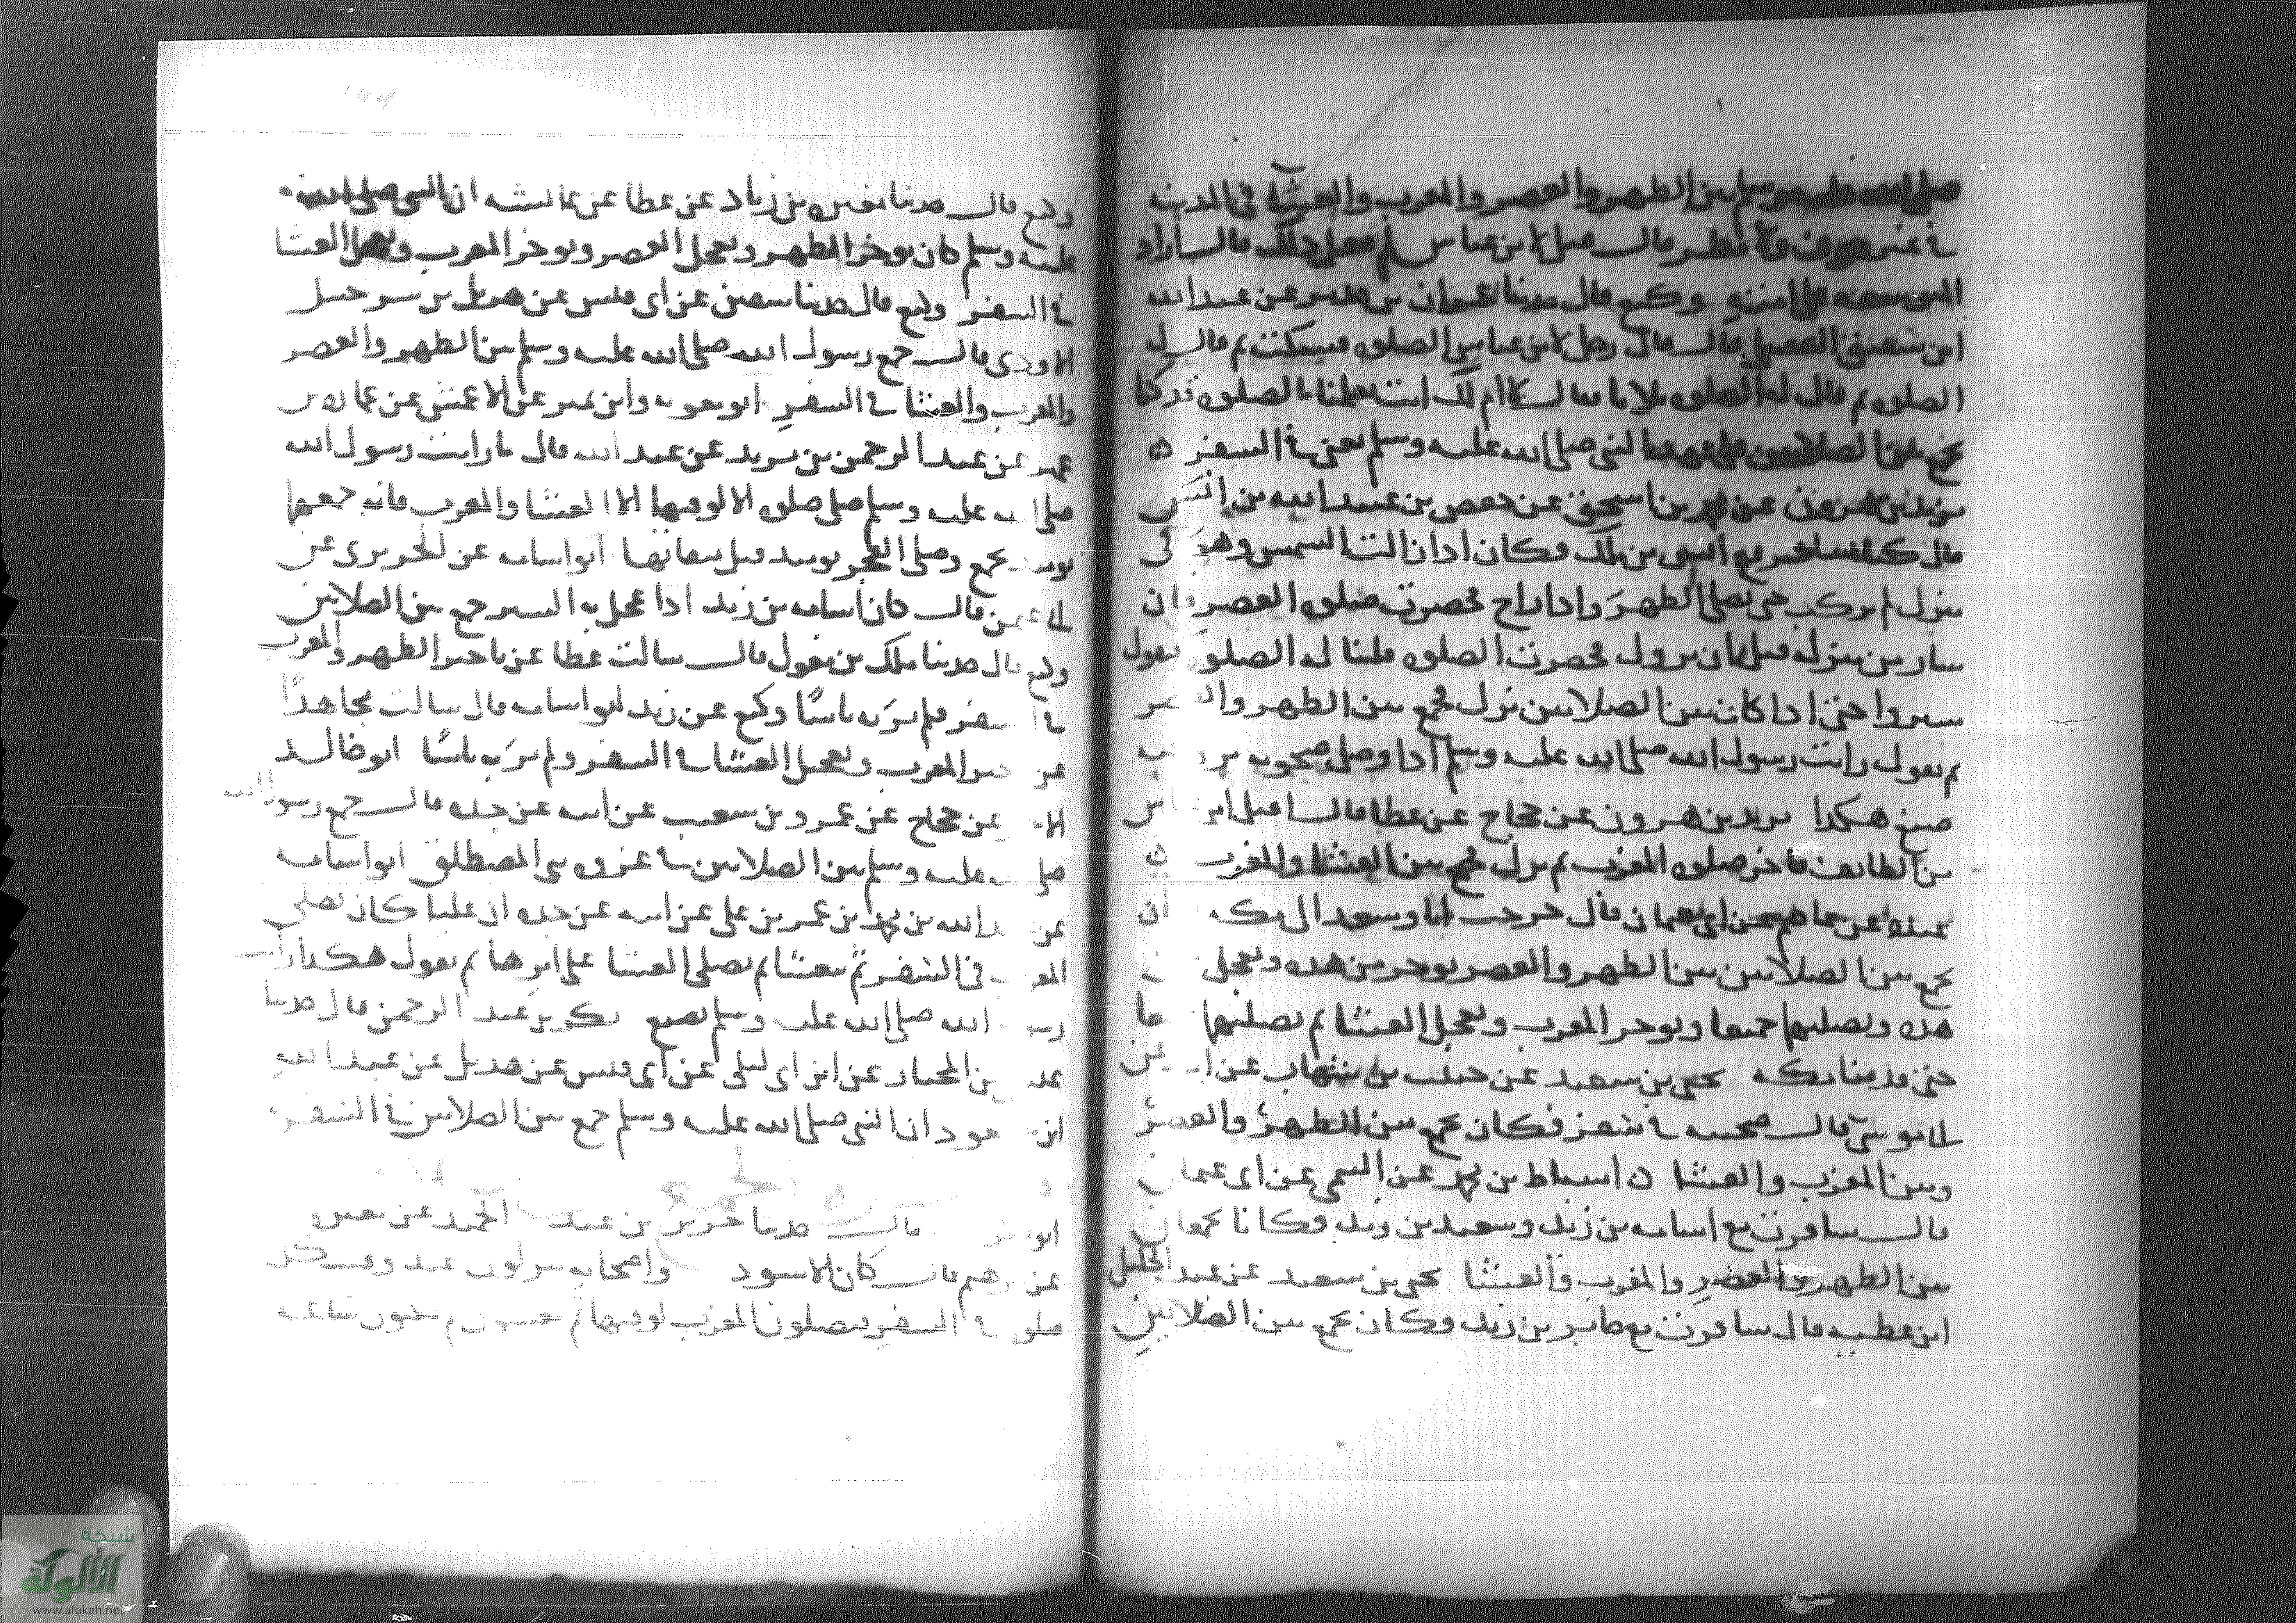 صلى الله عليه وسلم بين الظهر والعصر والمغرب والعشآ في المدينه
في غير خوف ولا مطر قال قيل لابن عباس لم فعل ذلك قال اراد
التوسعه على امته وكيع قال حدثنا عمران بن حدير عن عبد الله
ابن شقيق العقيلي قال قال رجل لابن عباس الصلوه فسكت ثم قال له
الصلوه ثم قال له الصلوه فقال لا ام لك انت تعلمنا بالصلوه قد كنا
نجمع بين الصلاتين على عهد النبي صلى الله عليه وسلم يعني في السفر ه
يزيد بن هرون عن محمد بن اسحق عن حفص بن عبيد الله بن انس
قال كنا نسافر مع انس بن ملك فكان اذا زالت الشمس وهو في
منزل لم يركب حتى يصلي الظهر واذا راح فحضرت صلوه العصر فان
سار من منزله قبل ان تزول فحضرت الصلوه قلنا له الصلوه فيقول
سيروا حتى اذا كان بين الصلاتين نزل فجمع بين الظهر والعصر
ثم يقول رايت رسول الله صلى الله عليه وسلم اذا وصل ضحوته بروحته
صنع هكذا يزيد بن هرون عن حجاج عن عطا قال اقبل ابن عباس
من الطائف فاخر صلوه المغرب ثم نزل فجمع بين العشا والمغرب ه
عن عاصم عن ابي عثمان قال خرجت انا وسعد الى مكه
يجمع بين الصلاتين بين الظهر والعصر يوخر من هذه ويعجل من
هذه ويصليهما جميعا ويوخر المغرب ويعجل العشا ثم يصليهما
حتى قدمنا مكه يحيى بن سعيد عن حبيب بن شهاب عن ابيه عن
ابي موسى قال صحبته في سفر فكان يجمع بين الظهر والعصر
وبين المغرب والعشا ه اسباط بن محمد عن التيمي عن ابي عثمان
قال سافرت مع اسامه بن زيد وسعيد بن زيد فكانا يجمعان
بين الظهر والعصر والمغرب والعشا يحيى بن سعيد عن عبد الجليل
ابن عطيه قال سافرت مع جابر بن زيد فكان يجمع بين الصلاتين
وكيع قال حدثنا مغيره بن زياد عن عطا عن عائشه ان النبي صلى الله
عليه وسلم كان يوخر الظهر ويعجل العصر ويوخر المغرب ويعجل العشا
في السفر وكيع قال حدثنا سفين عن ابي قيس عن هزيل بن شرحبيل
الاودي قال جمع رسول الله صلى الله عليه وسلم بين الظهر والعصر
والمغرب والعشا في السفر ابو معويه وابن نمير عن الاعمش عن عماره بن
عمير عن عبد الرحمن بن يزيد عن عبد الله قال ما رايت رسول الله
صلى الله عليه وسلم صلى صلوه الا لوقتها الا العشا والمغرب فانه جمعهما
يومئذ بجمع وصلى الفجر يومئذ قبل ميقاتها ابو اسامه عن الجريري عن
ابي عثمن قال كان اسامه بن زيد اذا عجل به السير جمع بين الصلاتين
وكيع قال حدثنا ملك بن مغول قال سالت عطا عن تاخير الظهر والمغرب
في السفر فلم ير به باسًا وكيع عن زيد ابو اسامه قال سالت مجاهدًا
عن تاخير المغرب وتعجيل العشا في السفر ولم ير به باسًا ابو خالد
الاحمر عن حجاج عن عمرو بن شعيب عن ابيه عن جده قال جمع رسول الله
صلى الله عليه وسلم بين الصلاتين في غزوه بني المصطلق ابو اسامه
عن عبد الله بن محمد بن عمر بن علي عن ابيه عن جده ان عليا كان يصلي
المغرب في السفر ثم يتعشا ثم يصلي العشا على اثرها ثم يقول هكذا رايت
رسول الله صلى الله عليه وسلم يصنع بكر بن عبد الرحمن قال حدثنا
عيسى بن المختار عن ابن ابي ليلى عن ابي قيس عن هذيل عن عبد الله
ابن مسعود ان النبي صلى الله عليه وسلم جمع بين الصلاتين في السفر
ابو بكر قال حدثنا جرير بن عبد الحميد عن مغيره
عن ابرهيم قال كان الاسود واصحابه ينزلون عند وقت كل
صلوه في السفر فيصلون المغرب لوقتها ثم يتعشون ثم يمكثون ساعه
شبكة
الألوكة
www.alukah.net